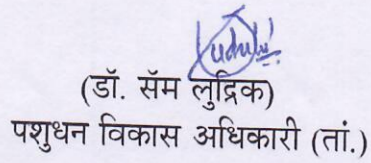 (डॉ. सॅम लुद्रिक)
पशुधन विकास अधिकारी (तां.)